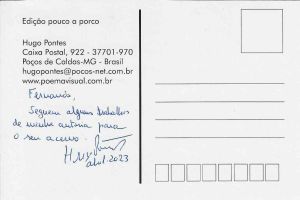 Edição pouco a porco
Hugo Pontes
Caixa Postal, 922 - 37701-970
Poços de Caldas-MG - Brasil
hugopontes@pocos-net.com.br
www.poemavisual.com.br
Fernando,
Seguem alguns trabalhos
de minha autoria para
o seu acervo.
Hugo Pontes
abril.2023